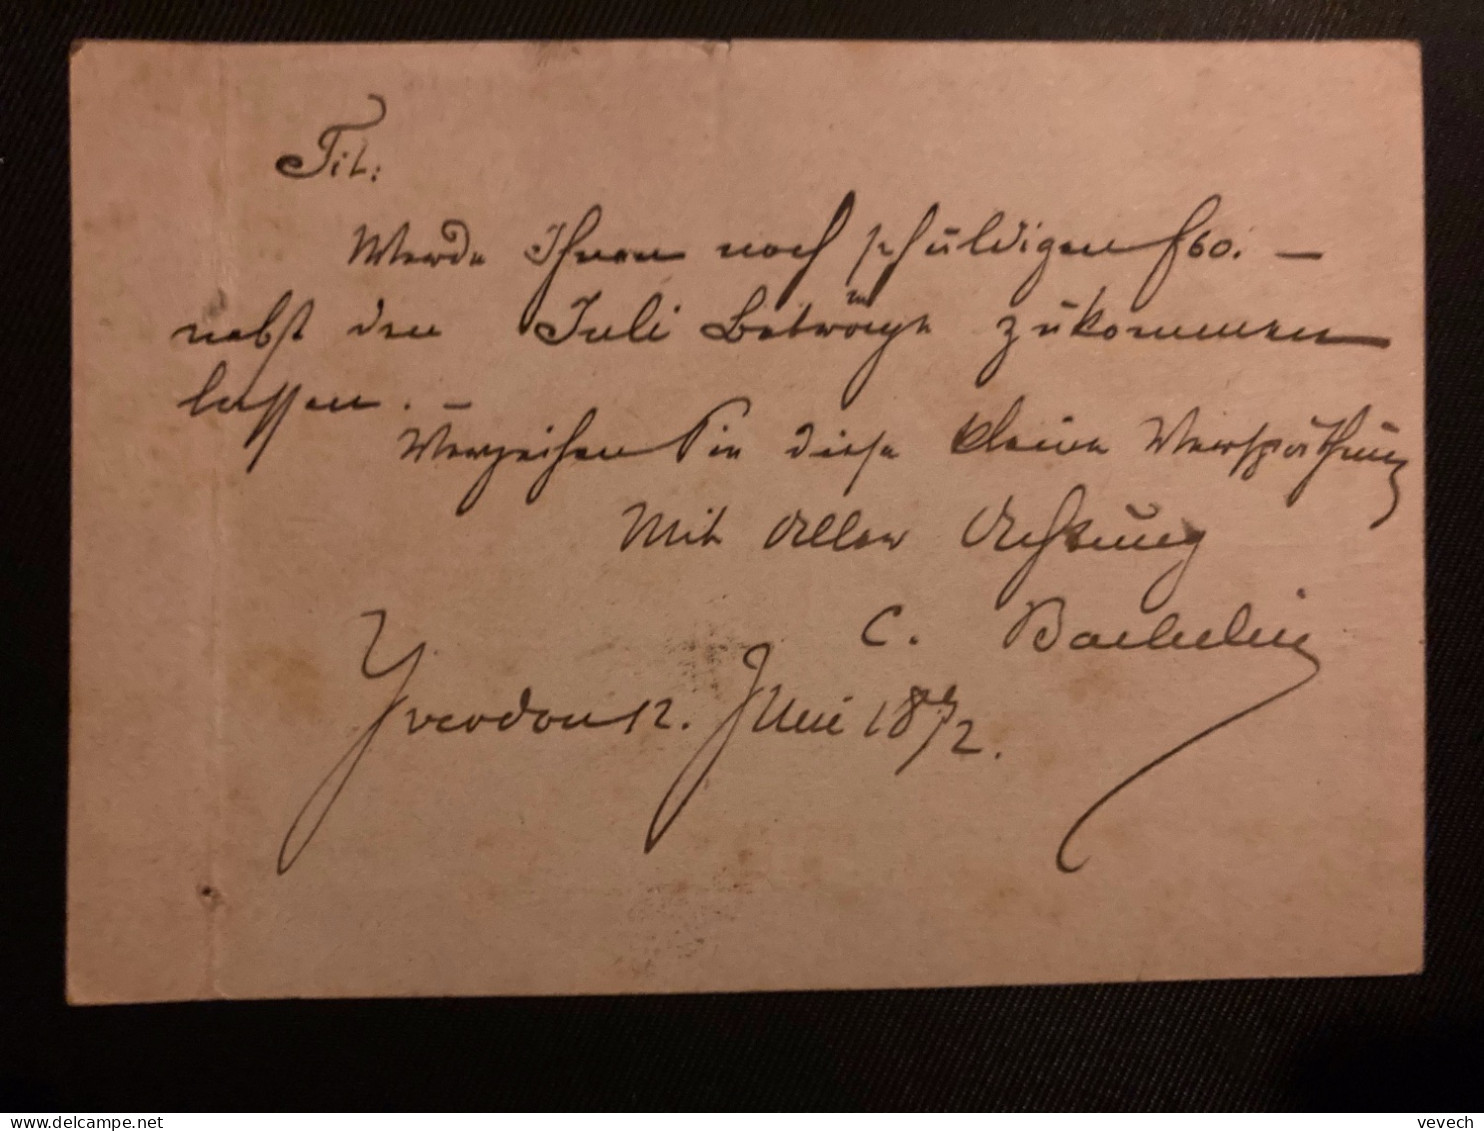 Tit:
Werde Ihnen noch schuldigen f 60. —
nebst den Juli Beträge zukommen
lassen. —
Verzeihen Sie diese kleine Verspäthung
Mit aller Achtung
C. Baechelin
Yverdon 12. Juni 1872.
vevech